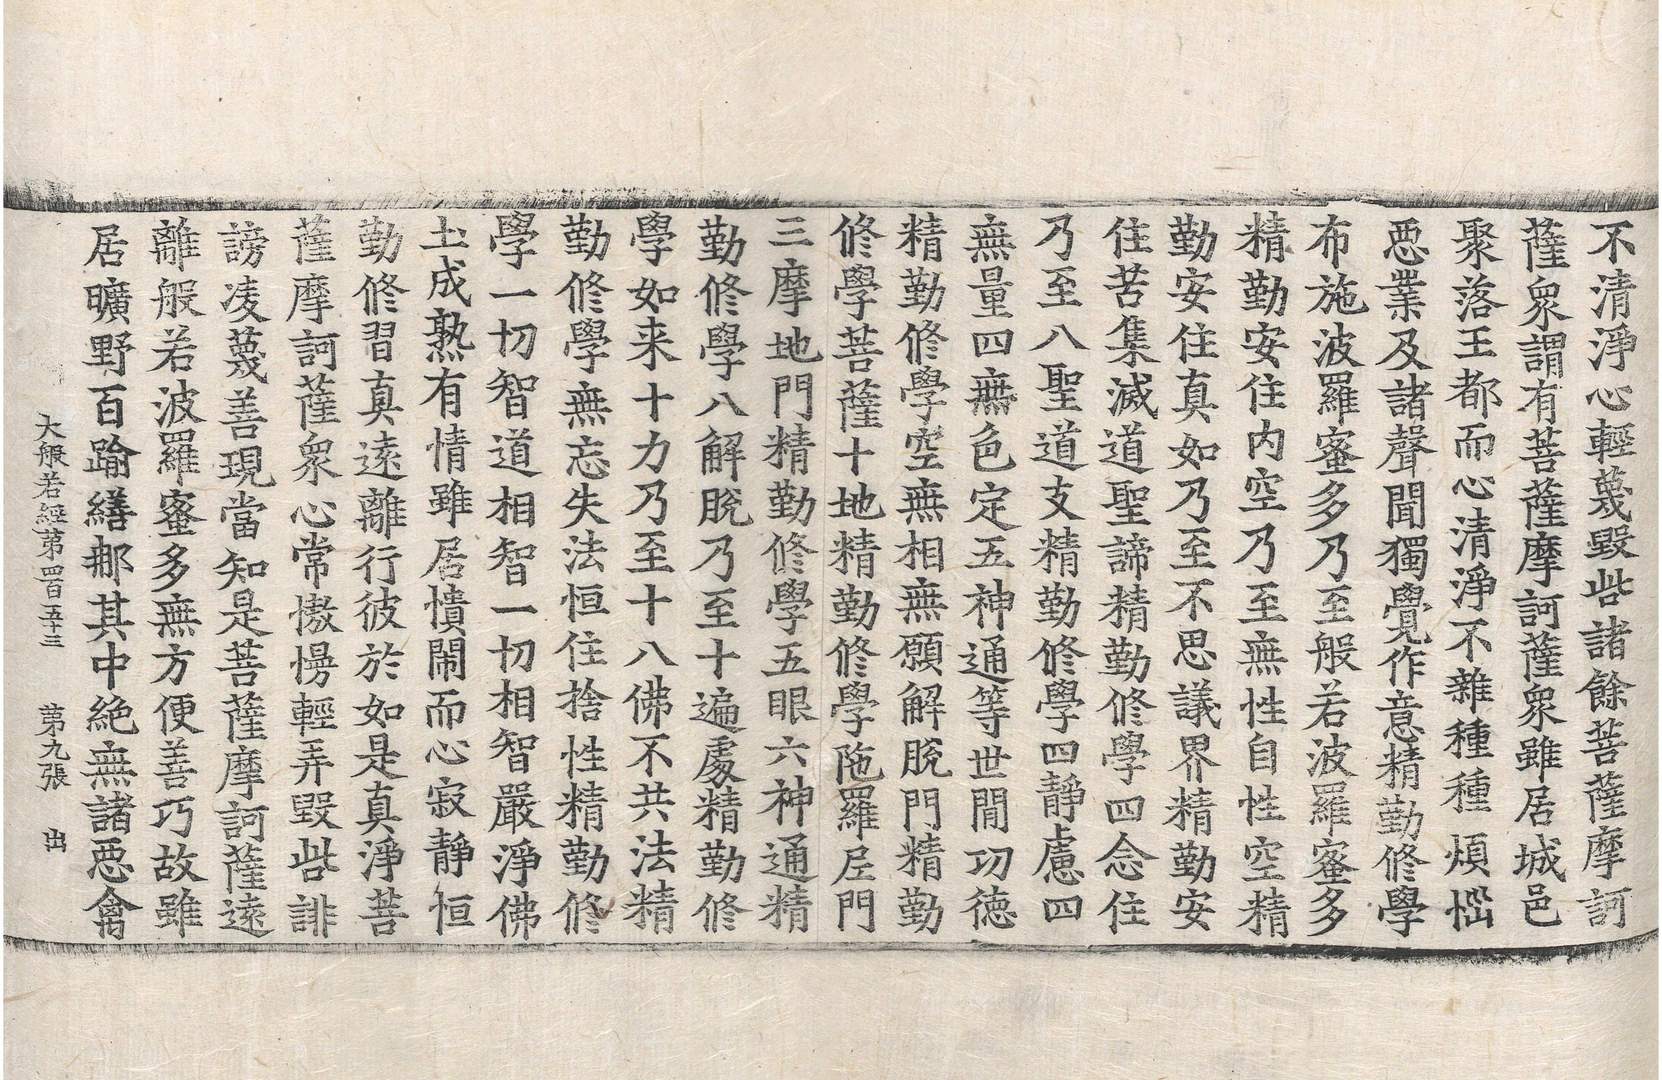 不清淨心輕蔑毀呰諸餘菩薩摩訶
薩衆謂有菩薩摩訶薩衆雖居城邑
聚落王都而心清淨不雜種種煩惱
惡業及諸聲聞獨覺作意精勤修學
布施波羅蜜多乃至般若波羅蜜多
精勤安住內空乃至無性自性空精
勤安住真如乃至不思議界精勤安
住苦集滅道聖諦精勤修學四念住
乃至八聖道支精勤修學四靜慮四
無量四無色定五神通等世間功德
精勤修學空無相無願解脫門精勤
修學菩薩十地精勤修學陁羅尼門
三摩地門精勤修學五眼六神通精
勤修學八解脫乃至十遍處精勤修
學如来十力乃至十八佛不共法精
勤修學無忘失法恒住捨性精勤修
學一切智道相智一切相智嚴淨佛
土成熟有情雖居憒閙而心寂靜恒
勤修習真遠離行彼於如是真淨菩
薩摩訶薩衆心常憿慢輕弄毀呰誹
謗凌蔑善現當知是菩薩摩訶薩遠
離般若波羅蜜多無方便善巧故雖
居曠野百踰繕那其中絶無諸惡禽
大般若經第四百五十三 第九張 出